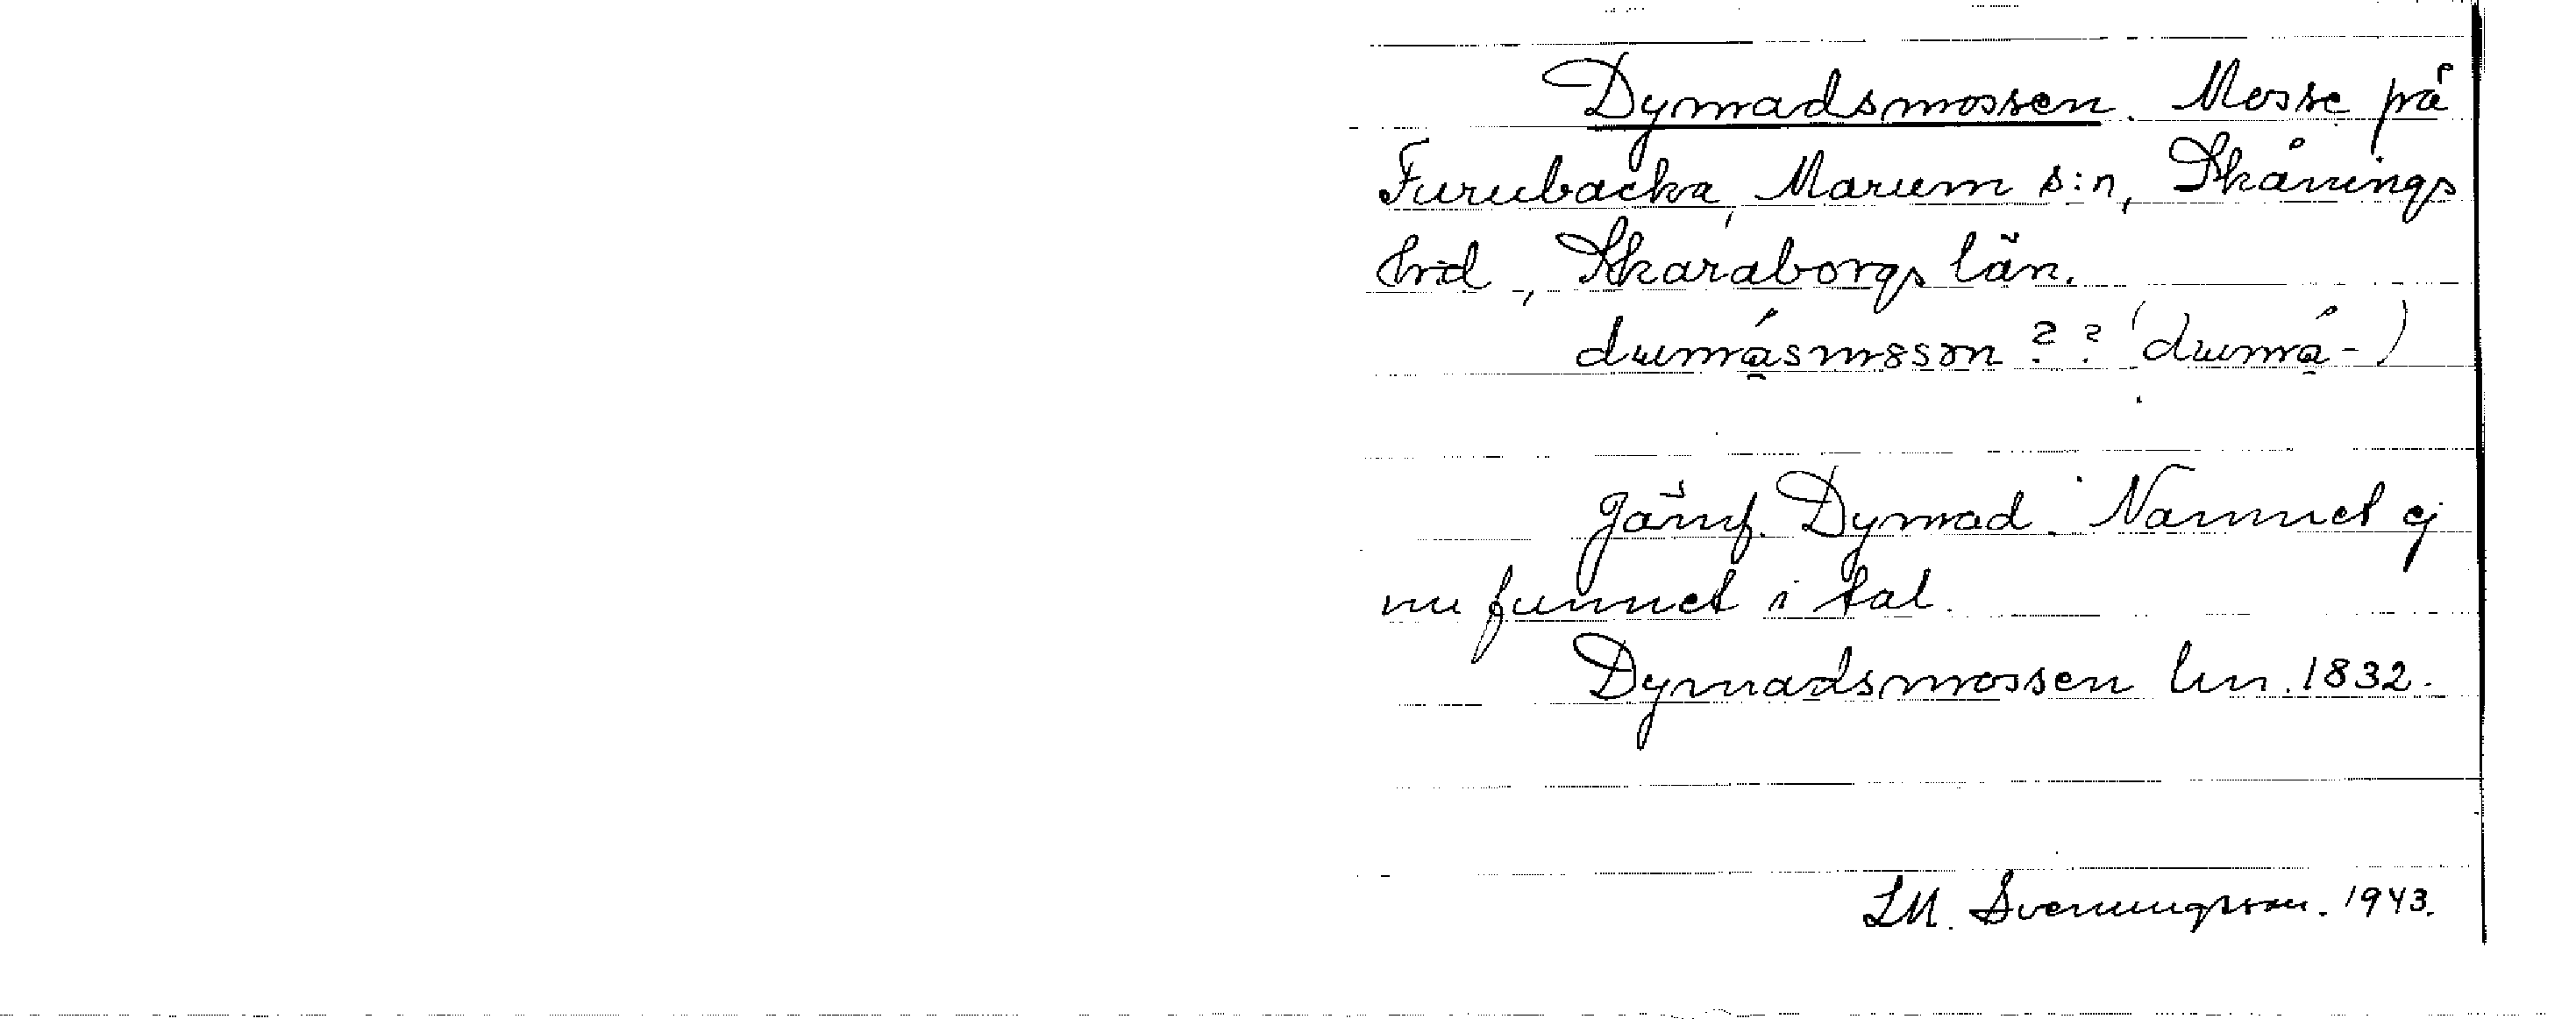 Dymadsmossen. Mosse på
Furubacka, Marum s:n, Skånings
hrd, Skaraborgs län.
dumásmssn ?? (dumá-)
Jämf. Dymad. Namnet ej
nu funnet i tal.
Dymadsmossen lm. 1832.
LM. Svenungsson. 1943.